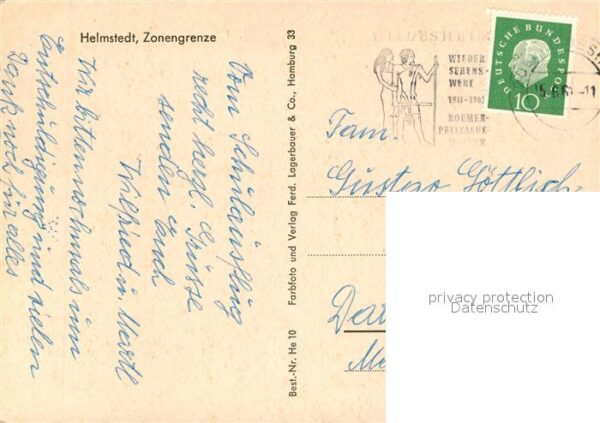 Helmstedt, Zonengrenze
Vom Schulausflug
recht herzl. Grüsse
senden Euch
Wilfried u. Martl
Wir bitten nochmals um
Entschuldigung und vielen
Dank noch für alles
Best.-Nr. He 10 Farbfoto und Verlag Ferd. Lagerbauer & Co., Hamburg 33
HILDESHEIM
WIEDER
SEHENS-
WERT
1911-1961
ROEMER-
PELIZAEUS-
MUSEUM
DEUTSCHE BUNDESPOST
10
Fam.
Göttlich
Dar
privacy protection
Datenschutz